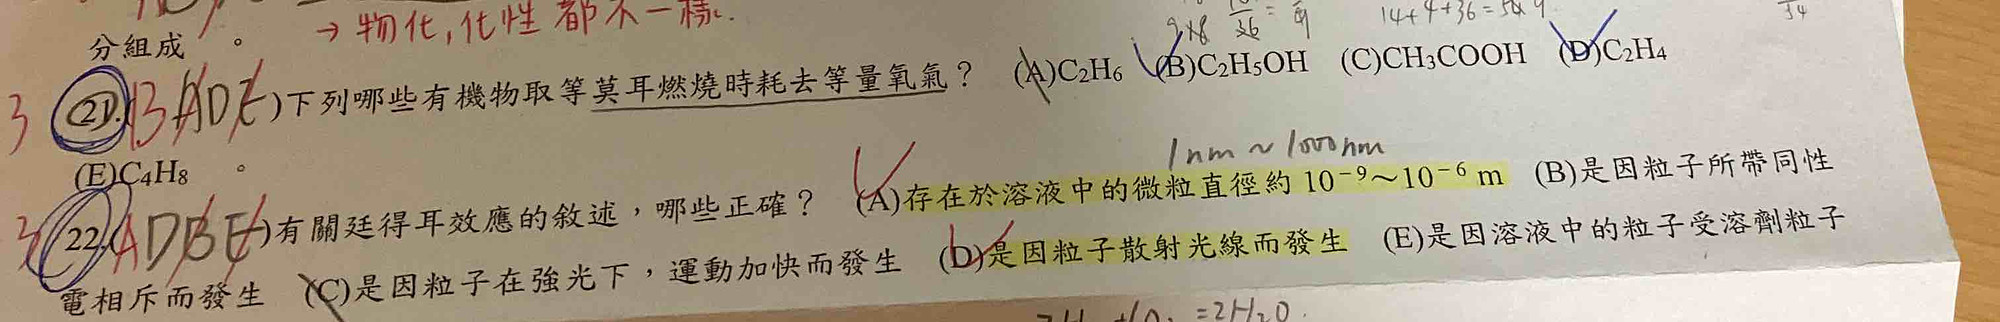 →物化,化性都不一樣.
14+4+36=54
分組成。
3 (21.)(BADE)下列哪些有機物取等莫耳燃燒時耗去等量氧氣？ (A)C2H6 (B)C2H5OH (C)CH3COOH (D)C2H4
(E)C4H8。
1nm~1000nm
3 (22.)(ADBE)有關廷得耳效應的敘述，哪些正確？ (A)存在於溶液中的微粒直徑約 10⁻⁹～10⁻⁶ m (B)是因粒子所帶同性
電相斥而發生 (C)是因粒子在強光下，運動加快而發生 (D)是因粒子散射光線而發生 (E)是因溶液中的粒子受溶劑粒子
=2H2O.